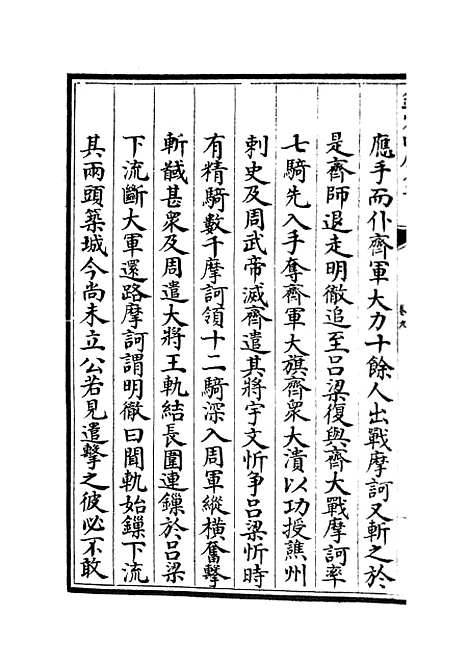 應手而仆齊軍大力十餘人出戰摩訶又斬之於
是齊師退走明徹追至吕梁復與齊大戰摩訶率
七騎先入手奪齊軍大旗齊衆大潰以功授譙州
刺史及周武帝滅齊遣其將宇文忻争吕梁忻時
有精騎數千摩訶領十二騎深入周軍縱横奮擊
斬馘甚衆及周遣大將王軌結長圍連鏁於吕梁
下流斷大軍還路摩訶謂明徹曰聞軌始鏁下流
其兩頭築城今尚未立公若見遣擊之彼必不敢